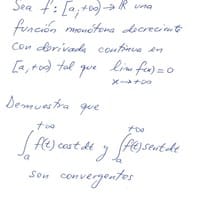 Sea f: [a,+∞) → ℝ una
función monótona decreciente
con derivada continua en
[a,+∞) tal que lim f(x)=0
x→+∞
Demuestra que
∫ₐ^{+∞} f(t) cost dt y ∫ₐ^{+∞} f(t) sent dt
son convergentes